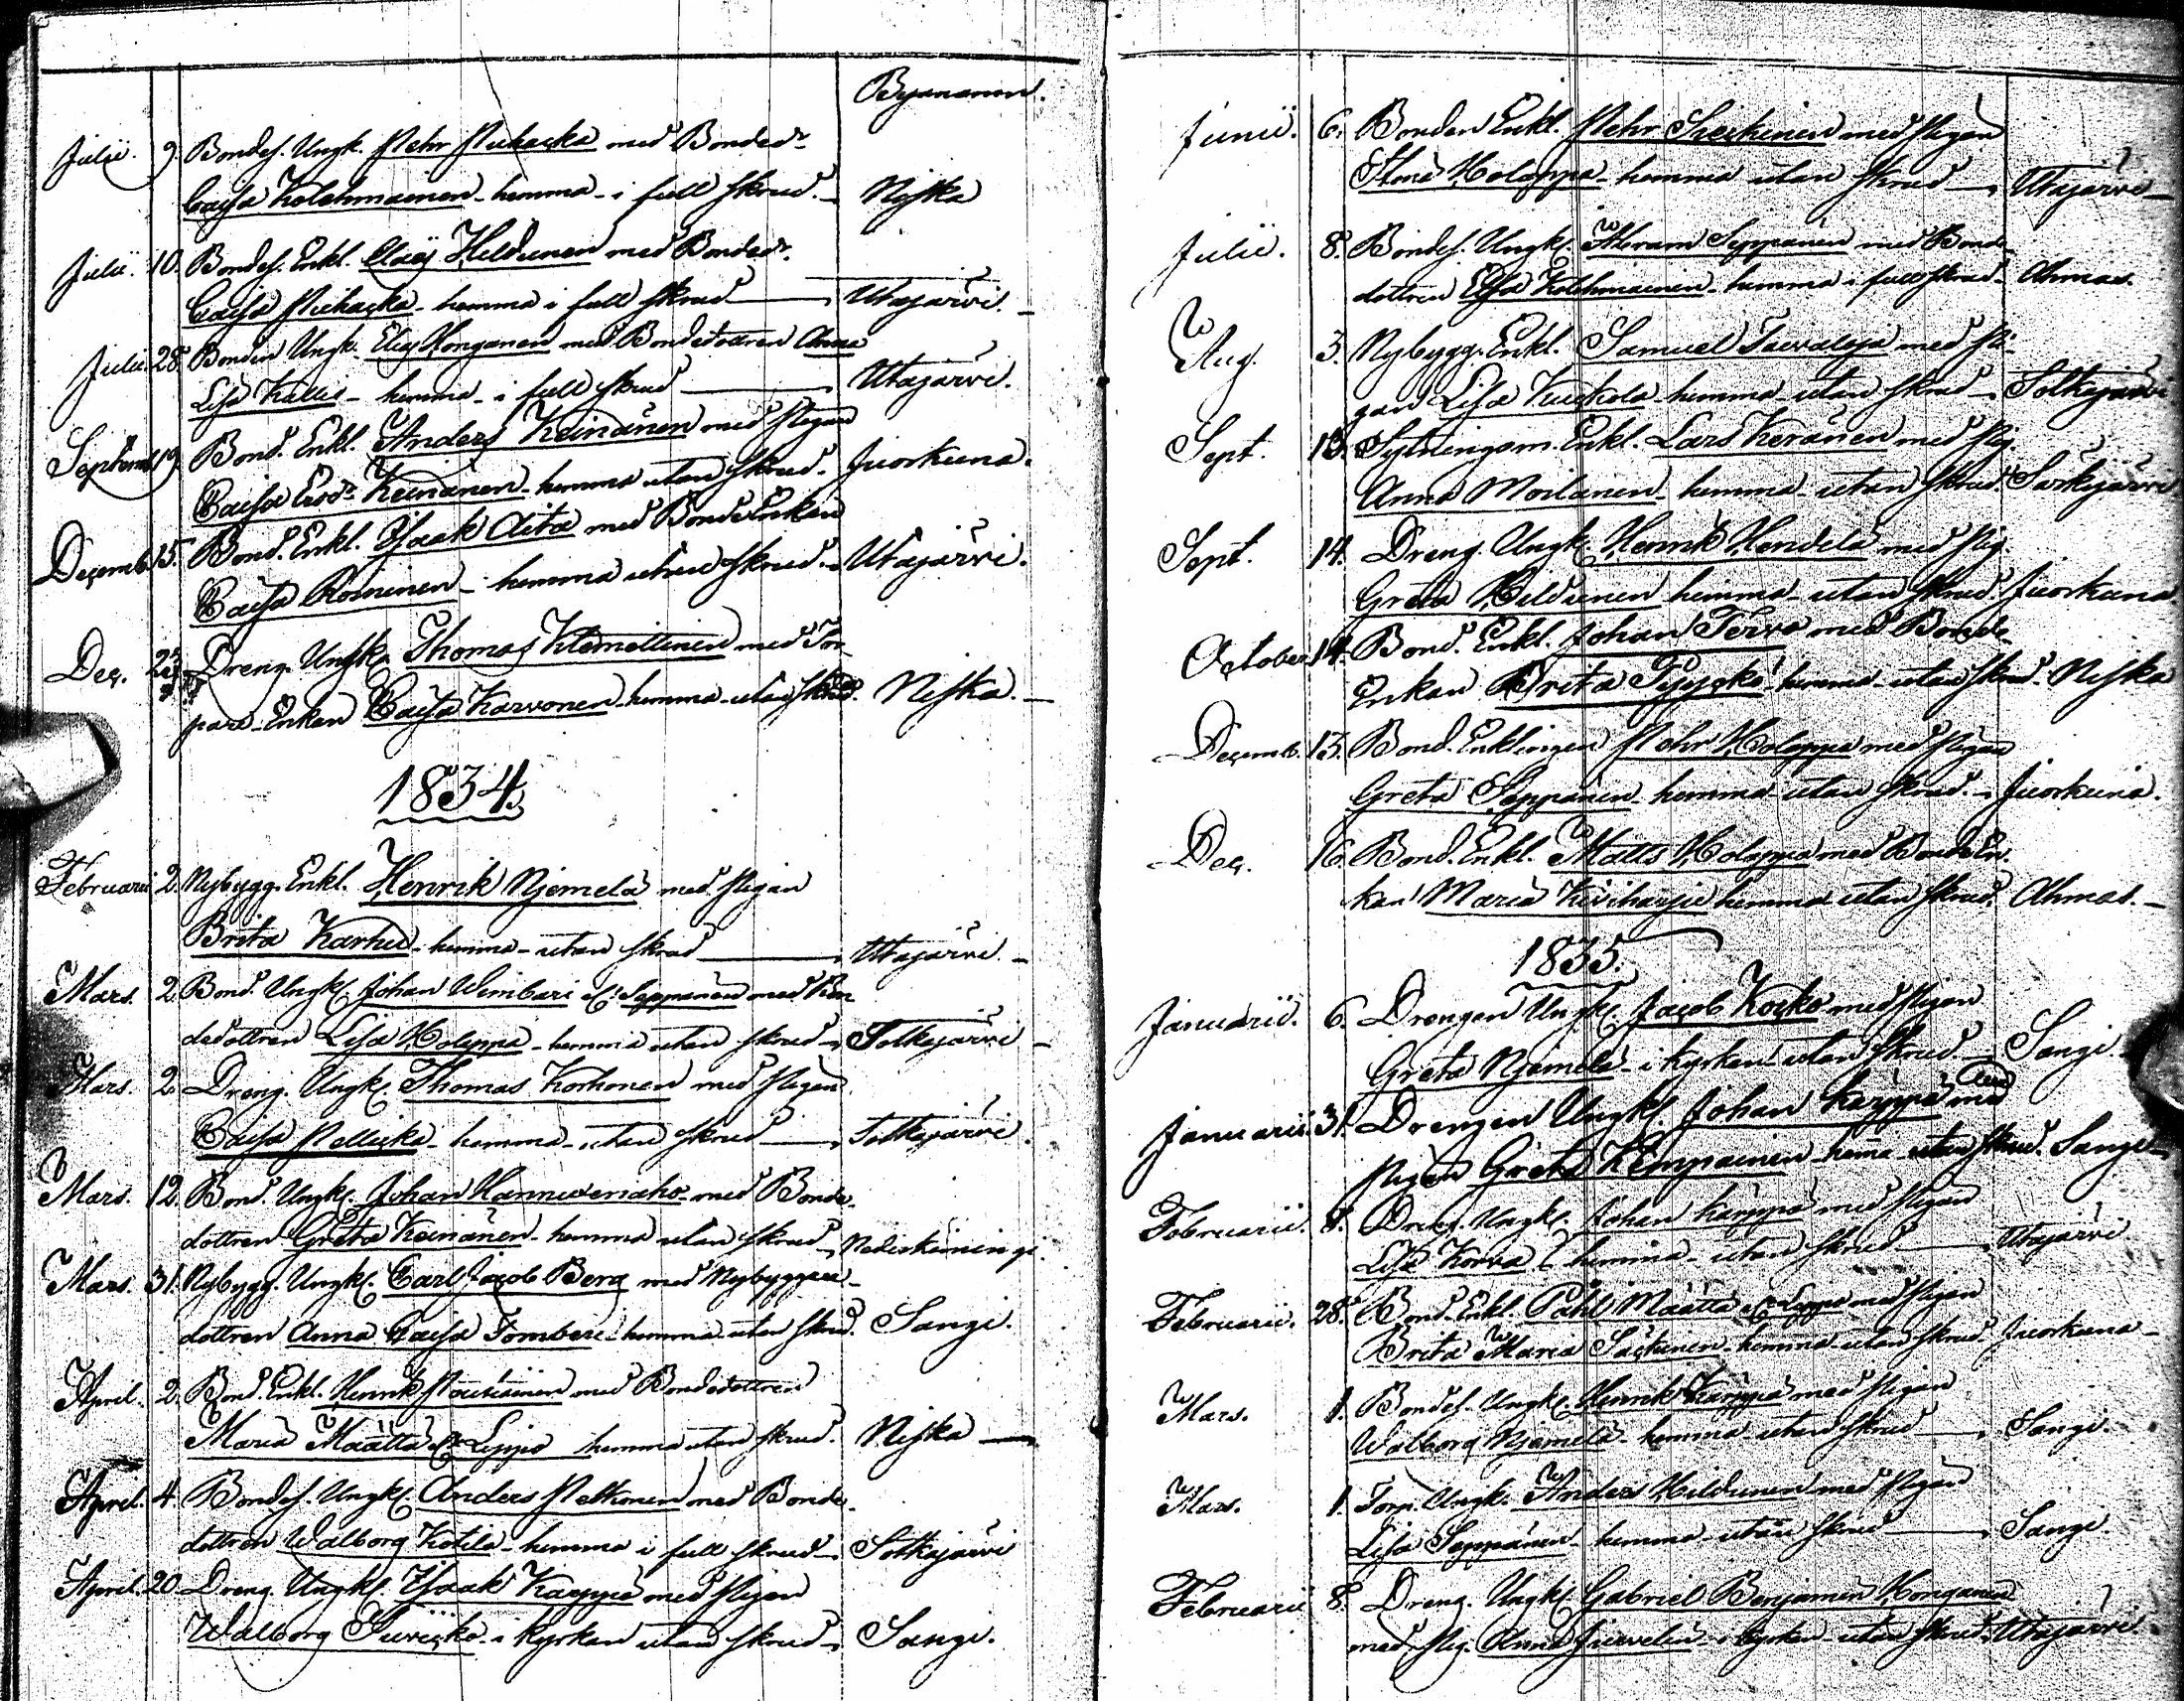 Byanamn.
Julii. 9. Bondes. Ungk. Pehr Pichacka med Bonded:r
Caisa Kolehmainen - hemma - i full skrud. - Niska
Julii. 10. Bondes. Enkl. Claes Heldunen med Bonded:r
Caisa Pichacka - hemma i full skrud - Utajärvi. -
Julii. 28. Bonden Ungk. Elias Honganen med Bondedottren Anna
Lisa Kallio - hemma - i full skrud - Utajärvi.
Septemb. 19. Bond. Enkl. Anders Keinänen med Pigan
Caisa Ersd:r Keinänen - hemma utan skrud. Juorkuna.
Decemb. 15. Bond. Enkl. Isaak Aita med Bonde Enkan
Caisa Roininen - hemma utan skrud. - Utajärvi.
Dec. Dreng. Ungk. Thomas Klemettinen med Tor-
pare-Enkan Caisa Karvonen - hemma - utan skrud. Niska. -
1834.
Februarii 2. Nybygg. Enkl. Henrik Njemelä med Pigan
Brita Karhu - hemma - utan skrud - Utajärvi. -
Mars. 2. Bond. Ungk. Johan Wimbari el. Seppänen med Bon-
dedottren Lisa Holappa - hemma utan skrud - Sotkajärvi -
Mars. 2. Dreng. Ungk. Thomas Korhonen med Pigan
Caisa Pellicka - hemma - utan skrud - Sotkajärvi.
Mars. 12. Bond. Ungk. Johan Hannuxenaho med Bonde-
dottren Greta Keinänen - hemma utan skrud - Nederkiiminge.
Mars. 31. Nybygg. Ungk. Carl Jacob Berg med Nybyggare-
dottren Anna Caisa Tomberi - hemma utan skrud. Sangi.
April. 2. Bond. Enkl. Henrik Pausiainen med Bondedottren
Maria Määttä el. Leppä hemma utan skrud. Niska -
April. 4. Bondes. Ungk. Anders Peltonen med Bonde-
dottren Walborg Kotila - hemma i full skrud - Sotkajärvi
April. 20. Dreng. Ungk. Isaak Karppa med Pigan
Walborg - i kyrkan utan skrud - Sangi.
Junii. 6. Bonden Enkl. Pehr med Pigan
Stina Holappa - hemma utan skrud - Utajärvi -
Julii. 8. Bondes. Ungk. Abram Seppänen med Bonde-
dottren Elsa Kolehmainen - hemma i full skrud - Ahmas.
Aug. 3. Nybygg. Enkl. Samuel Taivaloja med Pi-
gan Lisa Kuckola - hemma - utan skrud - Sotkajärvi
Sept. 13. Sytningsm. Enkl. Lars Keränen med Pig.
Anna Moilanen - hemma - utan skrud. Särkijärvi
Sept. 14. Dreng. Ungk. Henrik Hendelä med Pig.
Greta Heldunen hemma - utan skrud. Juorkuna
October 14. Bond. Enkl. Johan Terva med Bonde-
Enkan Brita - hemma - utan skrud - Niska
Decemb. 13. Bond. Enklingen Pehr Holappa med Pigan
Greta Seppänen - hemma utan skrud. - Juorkuna.
Dec. 16. Bond. Enkl. Matts Holappa med Bonde En-
kan Maria Kiviharju hemma utan skrud. Ahmas. -
1835.
Januarii. 6. Drengen Ungk. Jacob Kocko med Pigan
Greta Njemelä - i kyrkan utan skrud - Sangi.
Januarii. 31. Drengen Ungk. Johan Karppa med
Pigan Greta Kemppainen - hema utan skrud. Sangi -
Februarii. 8. Dreng. Ungk. Johan Karppa med Pigan
Lisa Korva - hemma - utan skrud - Utajärvi.
Februarii. 28. Bond. Enkl. Påhl Määttä el. Leppä med Pigan
Brita Maria Säckinen - hemma utan skrud - Juorkuna -
Mars. 1. Bondes. Ungk. Henrik Karppa med Pigan
Walborg Njemelä - hemma - utan skrud - Sangi.
Mars. 1. Torp. Ungk. Anders Heldunen med Pigan
Lisa Seppänen - hemma - utan skrud - Sangi.
Februarii 8. Dreng. Ungk. Gabriel Benjamin Honganen
med Pig. Anna Juvelin - i kyrkan utan skrud. Utajärvi